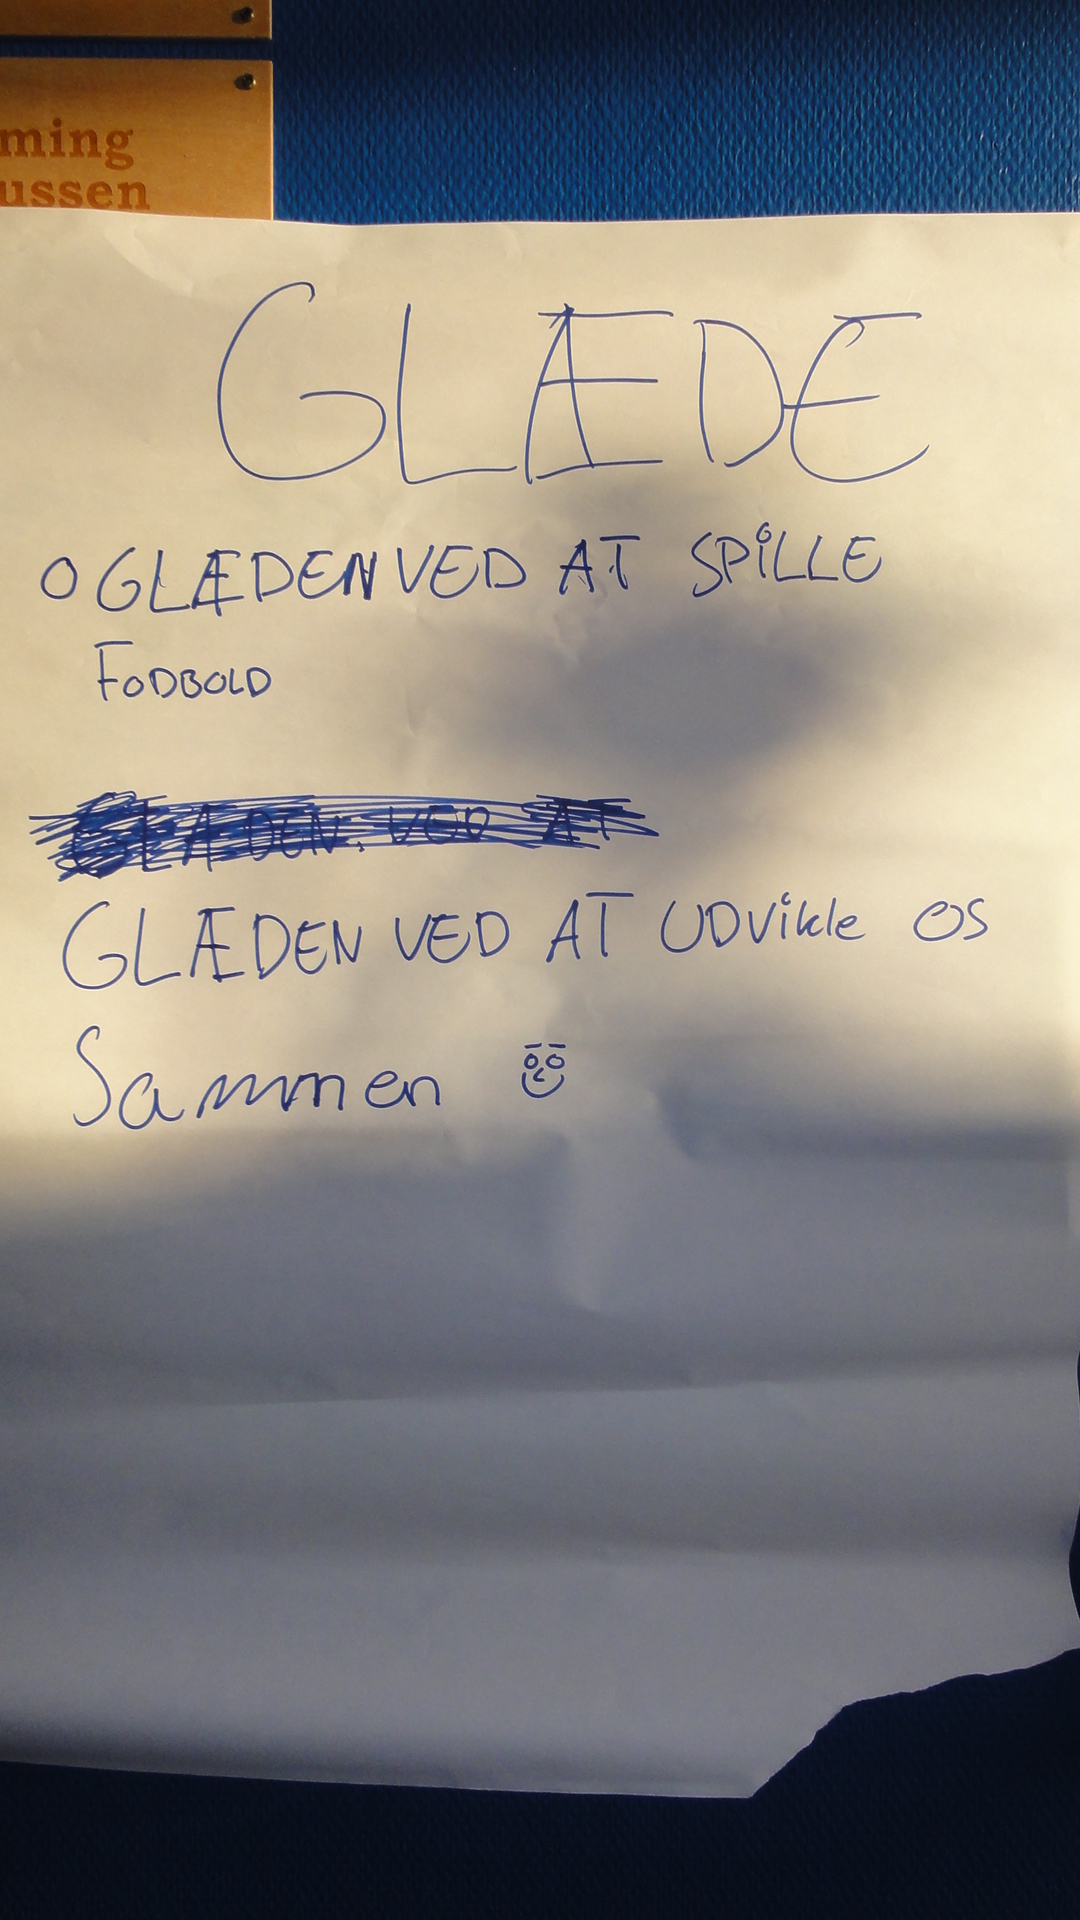 ming
ussen
GLÆDE
O GLÆDEN VED AT SPiLLE
FODBOLD
GLÆDEN VED AT
GLÆDEN VED AT UDVikle OS
Sammen